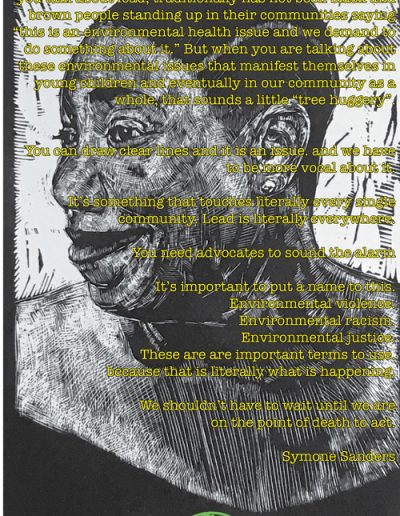 you talk about lead, traditionally has not been black and
brown people standing up in their communities saying
"this is an environmental health issue and we demand to
do something about it." But when you are talking about
these environmental issues that manifest themselves in
young children and eventually in our community as a
whole, that sounds a little "tree huggery"
You can draw clear lines and it is an issue. and we have
to be more vocal about it.
It's something that touches literally every single
community. Lead is literally everywhere.
You need advocates to sound the alarm
It's important to put a name to this.
Environmental violence.
Environmental racism.
Environmental justice.
These are are important terms to use.
because that is literally what is happening.
We shouldn't have to wait until we are
on the point of death to act.
Symone Sanders